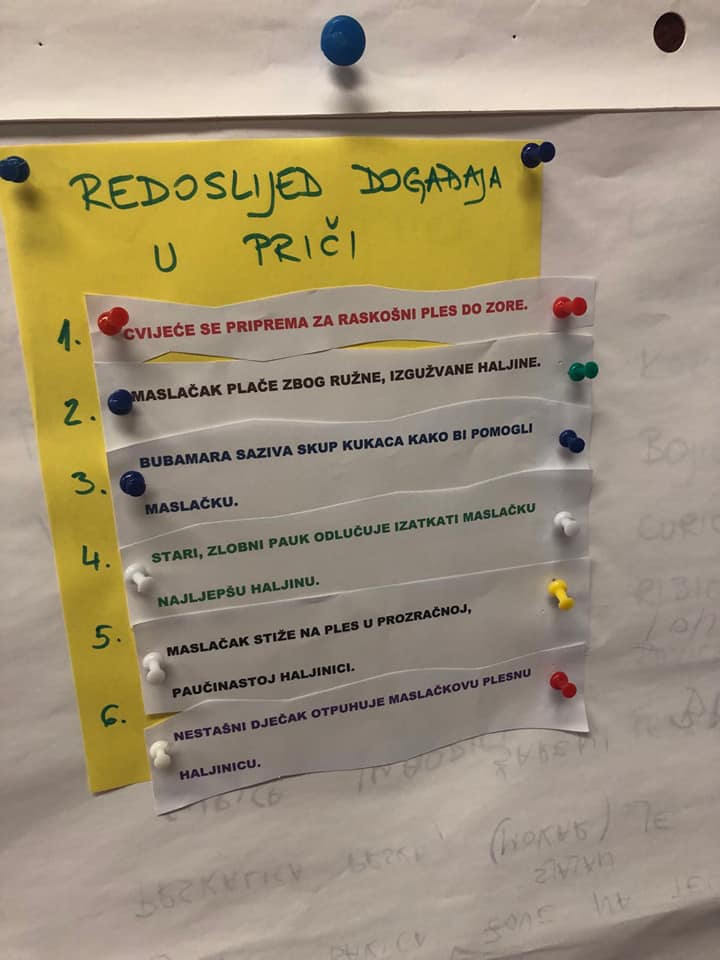 REDOSLIJED DOGAĐAJA
U PRIČI
1. CVIJEĆE SE PRIPREMA ZA RASKOŠNI PLES DO ZORE.
2. MASLAČAK PLAČE ZBOG RUŽNE, IZGUŽVANE HALJINE.
3. BUBAMARA SAZIVA SKUP KUKACA KAKO BI POMOGLI
MASLAČKU.
4. STARI, ZLOBNI PAUK ODLUČUJE IZATKATI MASLAČKU
NAJLJEPŠU HALJINU.
5. MASLAČAK STIŽE NA PLES U PROZRAČNOJ,
PAUČINASTOJ HALJINICI.
6. NESTAŠNI DJEČAK OTPUHUJE MASLAČKOVU PLESNU
HALJINICU.